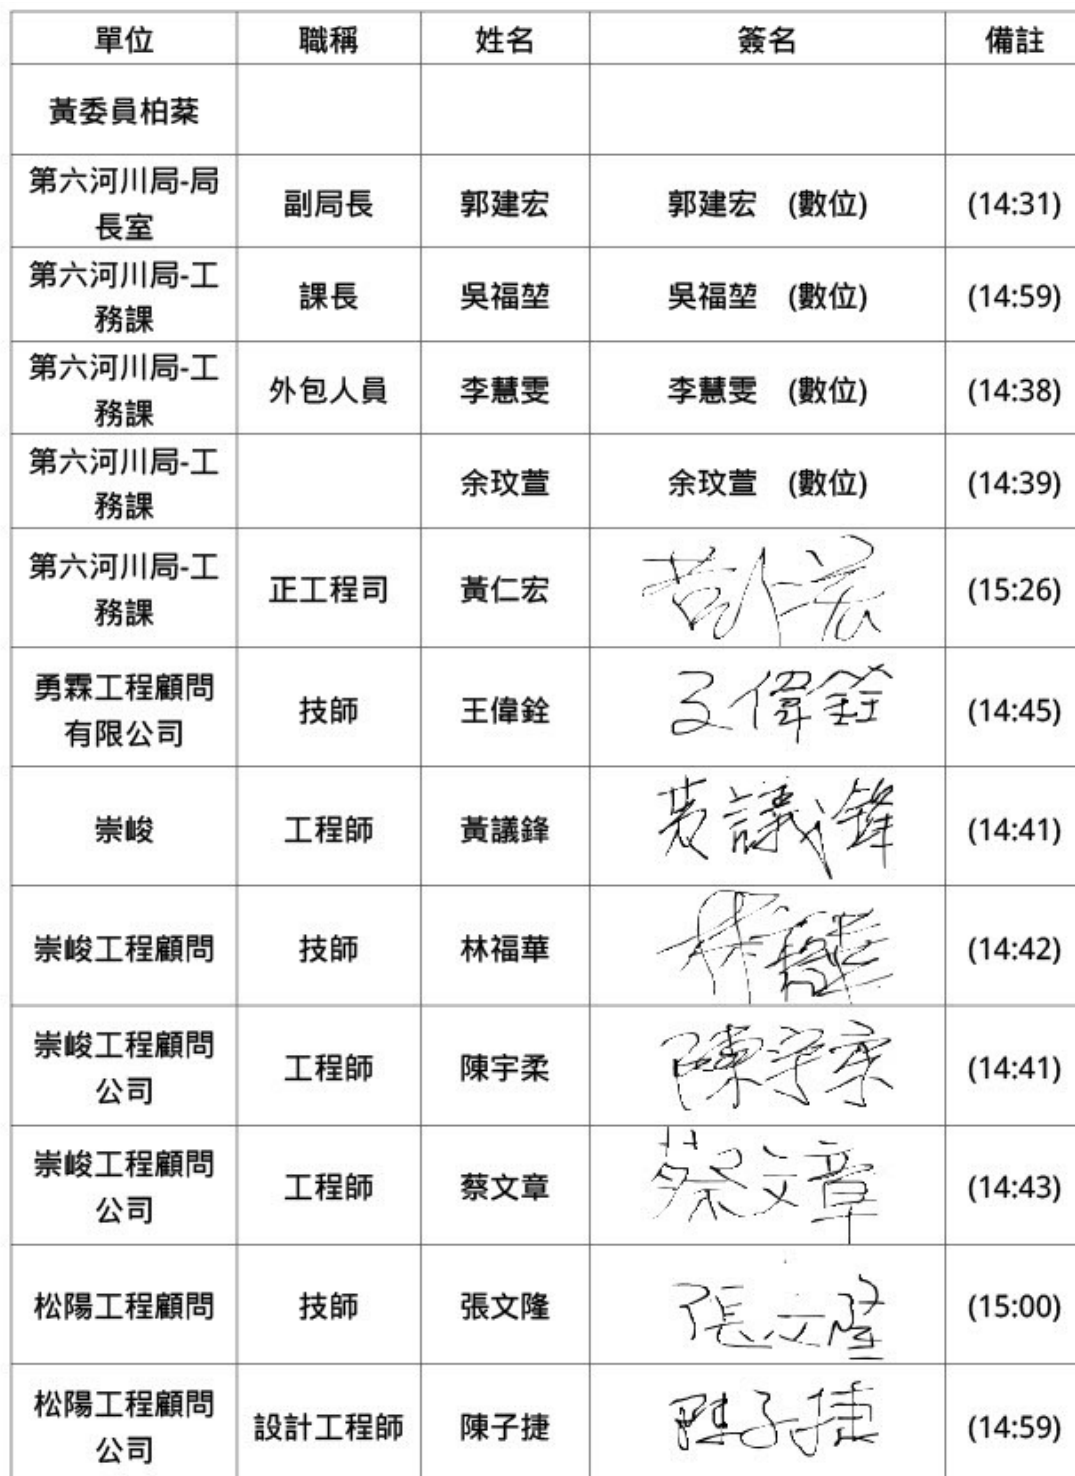 單位 職稱 姓名 簽名 備註
黃委員柏棻
第六河川局-局
長室 副局長 郭建宏 郭建宏 (數位) (14:31)
第六河川局-工
務課 課長 吳福堃 吳福堃 (數位) (14:59)
第六河川局-工
務課 外包人員 李慧雯 李慧雯 (數位) (14:38)
第六河川局-工
務課 余玟萱 余玟萱 (數位) (14:39)
第六河川局-工
務課 正工程司 黃仁宏 黃仁宏 (15:26)
勇霖工程顧問
有限公司 技師 王偉銓 王偉銓 (14:45)
崇峻 工程師 黃議鋒 黃議鋒 (14:41)
崇峻工程顧問 技師 林福華 林福華 (14:42)
崇峻工程顧問
公司 工程師 陳宇柔 陳宇柔 (14:41)
崇峻工程顧問
公司 工程師 蔡文章 蔡文章 (14:43)
松陽工程顧問 技師 張文隆 張文隆 (15:00)
松陽工程顧問
公司 設計工程師 陳子捷 陳子捷 (14:59)